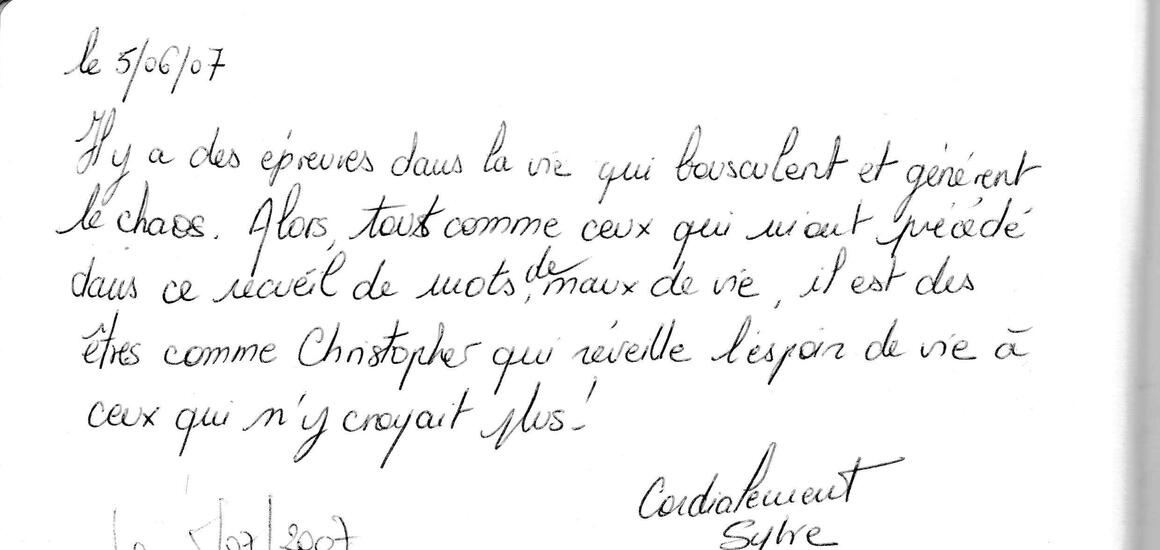 le 5/06/07
Il y a des épreuves dans la vie qui bousculent et générent
le chaos. Alors, tout comme ceux qui m'ont précédé
dans ce recueil de mots, de maux de vie, il est des
êtres comme Christopher qui réveille l'espoir de vie à
ceux qui n'y croyait plus!
Cordialement
Sylvie
5/07/2007